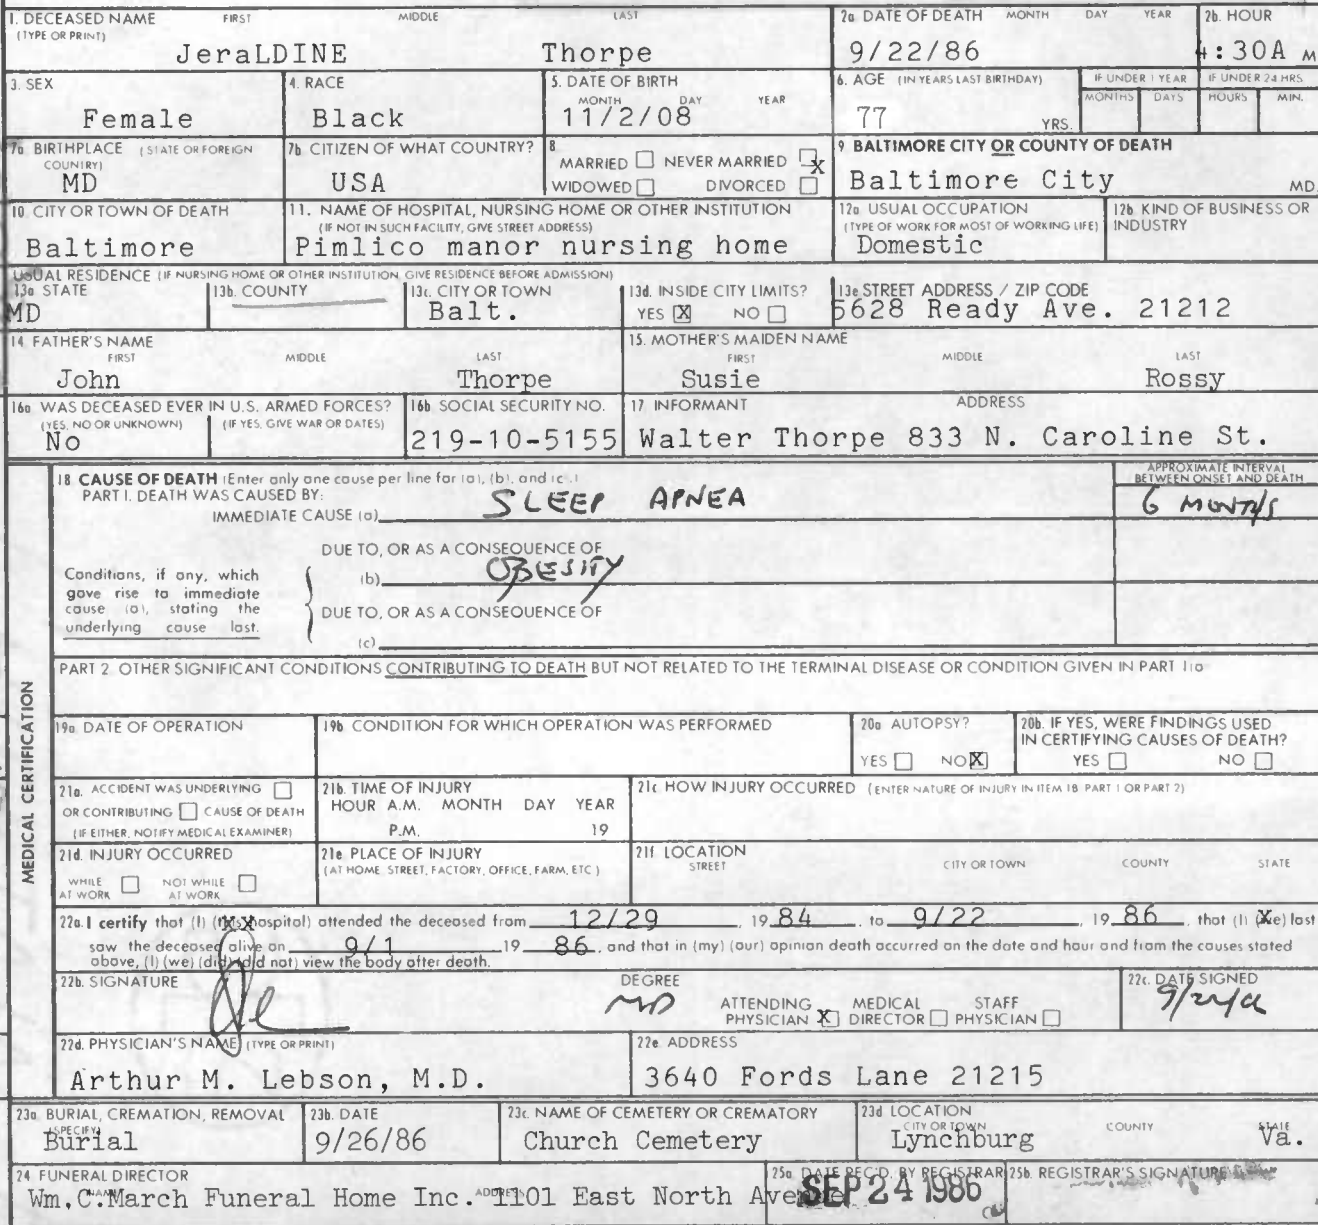 1. DECEASED NAME FIRST MIDDLE LAST
(TYPE OR PRINT)
JeraLDINE Thorpe
2a DATE OF DEATH MONTH DAY YEAR
9/22/86
2b. HOUR
4:30A M
3. SEX
Female
4. RACE
Black
5. DATE OF BIRTH
MONTH DAY YEAR
11/2/08
6. AGE (IN YEARS LAST BIRTHDAY)
77 YRS.
IF UNDER 1 YEAR
MONTHS DAYS
IF UNDER 24 HRS
HOURS MIN.
7a BIRTHPLACE (STATE OR FOREIGN
COUNTRY)
MD
7b CITIZEN OF WHAT COUNTRY?
USA
8
MARRIED NEVER MARRIED X
WIDOWED DIVORCED
9 BALTIMORE CITY OR COUNTY OF DEATH
Baltimore City MD.
10 CITY OR TOWN OF DEATH
Baltimore
11. NAME OF HOSPITAL, NURSING HOME OR OTHER INSTITUTION
(IF NOT IN SUCH FACILITY, GIVE STREET ADDRESS)
Pimlico manor nursing home
12a USUAL OCCUPATION
(TYPE OF WORK FOR MOST OF WORKING LIFE)
Domestic
12b KIND OF BUSINESS OR
INDUSTRY
USUAL RESIDENCE (IF NURSING HOME OR OTHER INSTITUTION GIVE RESIDENCE BEFORE ADMISSION)
13a STATE
MD
13b. COUNTY
13c. CITY OR TOWN
Balt.
13d. INSIDE CITY LIMITS?
YES X NO
13e STREET ADDRESS / ZIP CODE
5628 Ready Ave. 21212
14. FATHER'S NAME
FIRST MIDDLE LAST
John Thorpe
15. MOTHER'S MAIDEN NAME
FIRST MIDDLE LAST
Susie Rossy
16a WAS DECEASED EVER IN U.S. ARMED FORCES?
(YES, NO OR UNKNOWN) (IF YES, GIVE WAR OR DATES)
No
16b SOCIAL SECURITY NO.
219-10-5155
17 INFORMANT ADDRESS
Walter Thorpe 833 N. Caroline St.
MEDICAL CERTIFICATION
18 CAUSE OF DEATH (Enter only one cause per line for (a), (b), and (c).)
PART I. DEATH WAS CAUSED BY:
IMMEDIATE CAUSE (a) SLEEP APNEA
APPROXIMATE INTERVAL
BETWEEN ONSET AND DEATH
6 MONTHS
DUE TO, OR AS A CONSEQUENCE OF
(b) OBESITY
Conditions, if any, which
gave rise to immediate
cause (a), stating the
underlying cause last.
DUE TO, OR AS A CONSEQUENCE OF
(c)
PART 2 OTHER SIGNIFICANT CONDITIONS CONTRIBUTING TO DEATH BUT NOT RELATED TO THE TERMINAL DISEASE OR CONDITION GIVEN IN PART 1(a)
19a DATE OF OPERATION
19b CONDITION FOR WHICH OPERATION WAS PERFORMED
20a AUTOPSY?
YES NO X
20b. IF YES, WERE FINDINGS USED
IN CERTIFYING CAUSES OF DEATH?
YES NO
21a. ACCIDENT WAS UNDERLYING
OR CONTRIBUTING CAUSE OF DEATH
(IF EITHER, NOTIFY MEDICAL EXAMINER)
21b. TIME OF INJURY
HOUR A.M. MONTH DAY YEAR
P.M. 19
21c HOW INJURY OCCURRED (ENTER NATURE OF INJURY IN ITEM 18 PART 1 OR PART 2)
21d. INJURY OCCURRED
WHILE NOT WHILE
AT WORK AT WORK
21e PLACE OF INJURY
(AT HOME STREET, FACTORY, OFFICE, FARM, ETC)
21f LOCATION
STREET CITY OR TOWN COUNTY STATE
22a. I certify that (I) (this hospital) attended the deceased from 12/29 1984 to 9/22, 1986, that (I) (we) last
saw the deceased alive on 9/1 1986, and that in (my) (our) opinion death occurred on the date and hour and from the causes stated
above, (I) (we) (did) (did not) view the body after death.
22b. SIGNATURE
DEGREE
MD
ATTENDING MEDICAL STAFF
PHYSICIAN X DIRECTOR PHYSICIAN
22c. DATE SIGNED
22d. PHYSICIAN'S NAME (TYPE OR PRINT)
Arthur M. Lebson, M.D.
22e ADDRESS
3640 Fords Lane 21215
23a BURIAL, CREMATION, REMOVAL
(SPECIFY)
Burial
23b. DATE
9/26/86
23c. NAME OF CEMETERY OR CREMATORY
Church Cemetery
23d LOCATION
CITY OR TOWN COUNTY STATE
Lynchburg Va.
24 FUNERAL DIRECTOR
NAME ADDRESS
Wm.C.March Funeral Home Inc. 1101 East North Avenue
25a DATE REC'D. BY REGISTRAR
SEP 24 1986
25b. REGISTRAR'S SIGNATURE